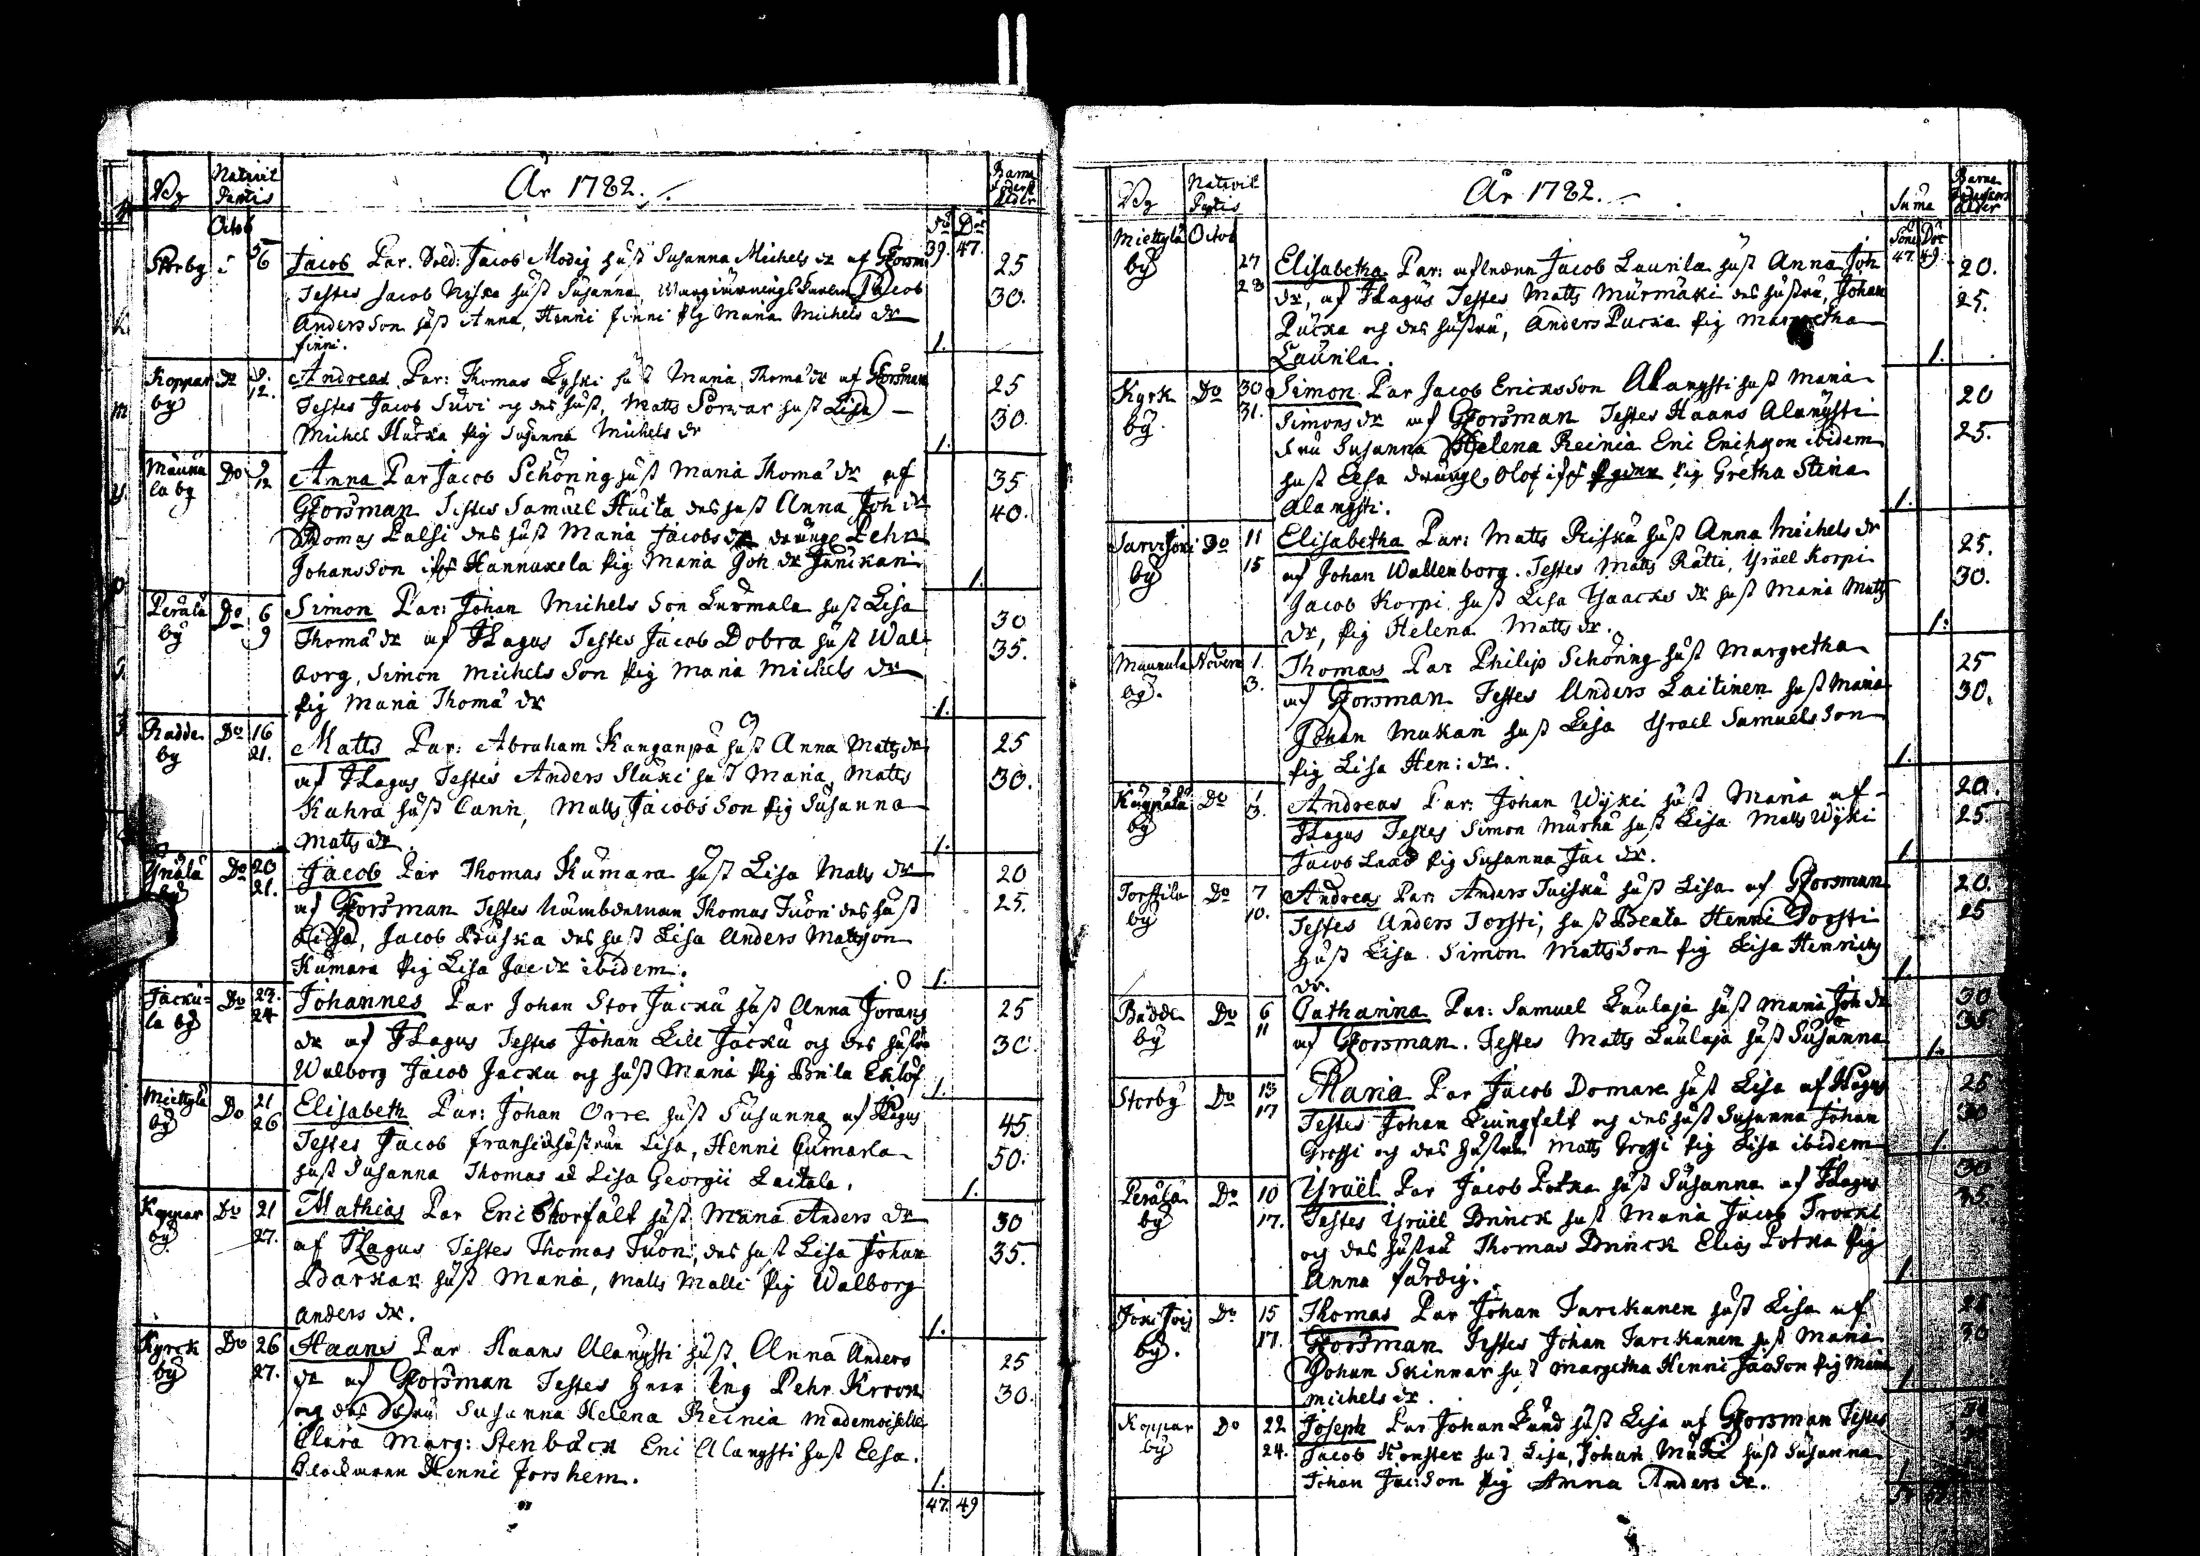 By
Nativit
År 1782.
Barna
Octob
Sö Dör
39. 47.
Storby 5/6 Jacob Par. Sold: Jacob Modig hust Susanna Michels dr af Forsm
25
Testes Jacob Niska hust Susanna, Jacob
30.
Anders Son hust Anna, Henric finni Pig Maria Michels dr
finni.
1.
Koppar do 9. Andreas Par: Thomas Lyski hust Maria Thomæ dr af Forsman
25
by 12. Testes Jacob Suvi och des hust, Matts Porkar hust Lisa
30.
Michel Hucka Pig Susanna Michels dr
1.
Maunu Do 9 Anna Par Jacob Schöning hust Maria Thomæ dr af
35
la by 12 Forsman Testes Samuel Huita des hust Anna Joh dr
40.
Thomas Palsi des hust Maria Jacobs dr dränge Pehr
Johansson Hannukela Pig Maria Joh. dr Junikani
1.
Perälä Do 6 Simon Par: Johan Michels Son Lurmala hust Lisa
30
by 9 Thomæ dr af Hagus Testes Jacob Dobra hust Wal
35.
borg, Simon Michels Son Pig Maria Michels dr
Pig Maria Thomæ dr
1.
Radde Do 16 Matts Par: Abraham Kanganpä hust Anna Matts dr
25
by 21. af Hagus Testes Anders Sluki hust Maria, Matts
30.
Kahra hust Carin, Matts Jacobs Son Pig Susanna
Matts dr.
1.
Ynälä Do 20 Jacob Par Thomas Kumara hust Lisa Matts dr
20
by 21. af Forsman Testes Nämbdeman Thomas Tuori des hust
25.
Lisa, Jacob Buska des hust Lisa Anders Mattsson
Kumara Pig Lisa Jac dr ibidem.
1.
Jäcku= Do 23. Johannes Par Johan Stor Jäcku hust Anna Jorans
25
la by 24 dr af Hagus Testes Johan Lill Jäcku och des hustru
30.
Walborg Jacob Jäcku och hust Maria Pig Brita Eklöf
1.
Miettylä Do 21 Elisabeth Par: Johan Orre hust Susanna af Hagus
45
by 26 Testes Jacob fransi hustrun Lisa, Henric Cumarla
50.
hust Susanna Thomas et Lisa Georgii Laitala.
1.
Koppar Do 21 Mathias Par Eric Storfält hust Maria Anders dr
30
by 27. af Hagus Testes Thomas Tuori, des hust Lisa Johan
35.
Barkar hust Maria, Matts Malli Pig Walborg
Anders dr.
1.
Kyrck Do 26 Haans Par Haans Alangsti hust Anna Anders
25
by 27. dr af Forsman Testes herr Pehr Kroon
30.
och des fru Susanna Helena Reinia Mademoiselle
Clara Marg: Stenbäck Eric Alangsti hust Elsa.
Klockaren Henric Forshem.
1.
47. 49
By
Nativit
År 1782.
Suma
Barna
Ålder
Miettylä Octob
Söner Dör
47. 49.
by 27 Elisabetha Par: Jacob Laurila hust Anna Joh
20.
28 dr, af Hagus Testes Matts Murmäki des hustru, Johan
25.
Pucka och des hustru, Anders Pucka Pig Margretha
Laurila.
1.
Kyrk Do 30 Simon Par Jacob Ericksson Alangsti hust Maria
20
by 31. Simons dr af Forsman Testes Haans Alangsti
25.
fru Susanna Helena Reinia Eric Ericksson ibidem
hust Elsa dränge Olof Pig Gretha Stina
Alangsti.
1.
Jarvijoki Do 11 Elisabetha Par: Matts Riska hust Anna Michels dr
25.
by 15 af Johan Wallenborg. Testes Matts Rätti, Israel Korpi
30.
Jacob Korpi hust Lisa Isaacks dr hust Maria Matts
dr, Pig Helena Matts dr.
1.
Maunula Novem 1. Thomas Par Philip Schöning hust Margretha
25
by. 3. af Forsman Testes Anders Laitinen hust Maria
30.
Johan Mukari hust Lisa Israel Samuelsson
Pig Lisa Hen: dr.
1.
by Do 1 Andreas Par: Johan Wyki hust Maria af
20.
3. Hagus Testes Simon Murha hust Lisa Matts Wyki
25
Jacob Laad Pig Susanna Jac dr.
1
Torstila Do 7 Andreas Par: Anders Juiskä hust Lisa af Forsman
20.
by 10. Testes Anders Torsti, hust Beata Henric Torsti
25
hust Lisa Simon Mattsson Pig Lisa Henrichs
dr.
1.
Bädde Do 6 Catharina Par: Samuel Laulaja hust Maria Joh dr
30
by 11 af Forsman. Testes Matts Laulaja hust Susanna
35
1.
Storby Do 13 Maria Par Jacob Domare hust Lisa af Hagus
25
17 Testes Johan Liungfelt och des hust Susanna Johan
30
Grossi och des hustru Matts Grossi Pig Lisa ibidem
1.
Perälä Do 10 Israel Par Jacob Potka hust Susanna af Hagus
30
by 17. Testes Israel Brinck hust Maria Jacob Trocki
35.
och des hustru Thomas Brinck Elias Potka Pig
Anna färdig.
1
Do 15 Thomas Par Johan Jurckanen hust Lisa af
by. 17. Forsman Testes Johan Jurckanen hust Maria
30
Johan Skinnar hust Margetha Henric Jacson Pig Maria
Michels dr.
1
Koppar Do 22 Joseph Par Johan Lund hust Lisa af Forsman Testes
by 24. Jacob Konster hust Lisa, Johan Mäki hust Susanna
Johan Jac: Son Pig Anna Anders dr.